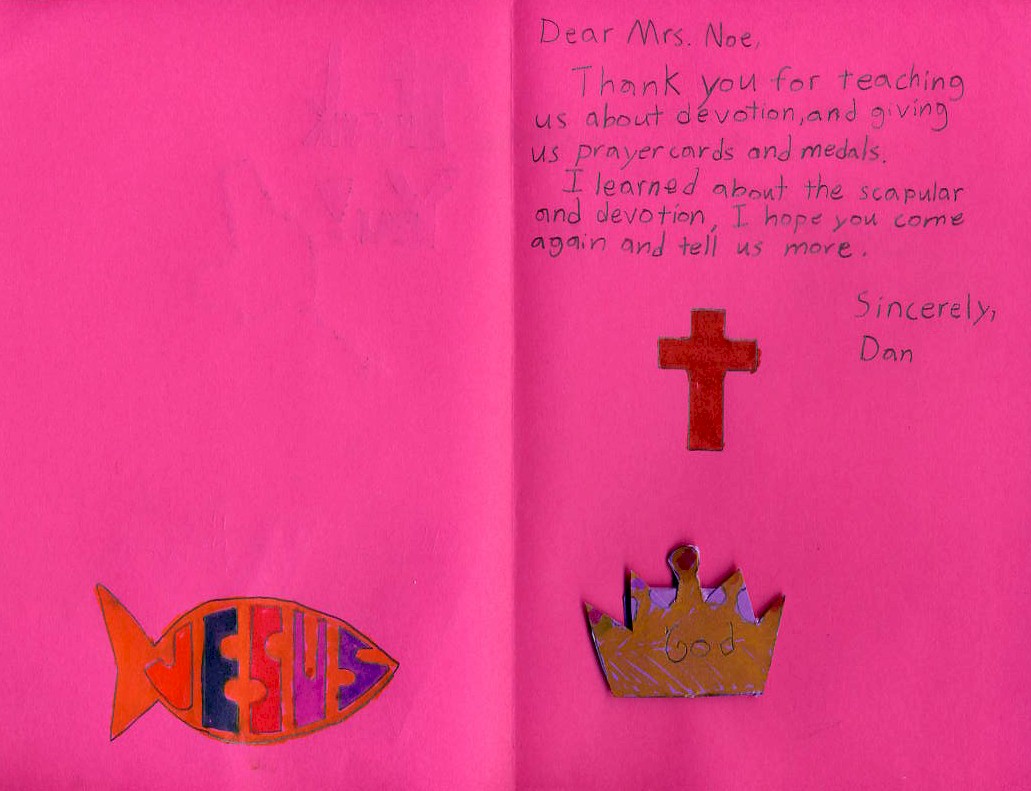 Dear Mrs. Noe,
Thank you for teaching
us about devotion, and giving
us prayer cards and medals.
I learned about the scapular
and devotion, I hope you come
again and tell us more.
Sincerely,
Dan
JESUS
God